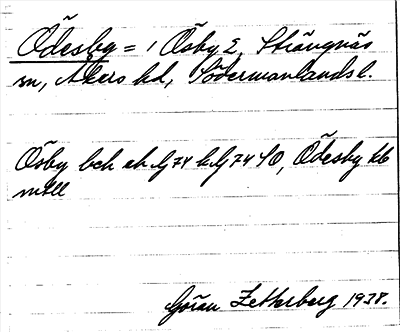 Ödesby = 1 Ösby 2, Strängnäs
sn, Åkers hd, Södermanlands l.
Ösby bch ek Gj 74 k Gj 74 40, Ödesby kb
mtll
Göran Zetterberg 1938.